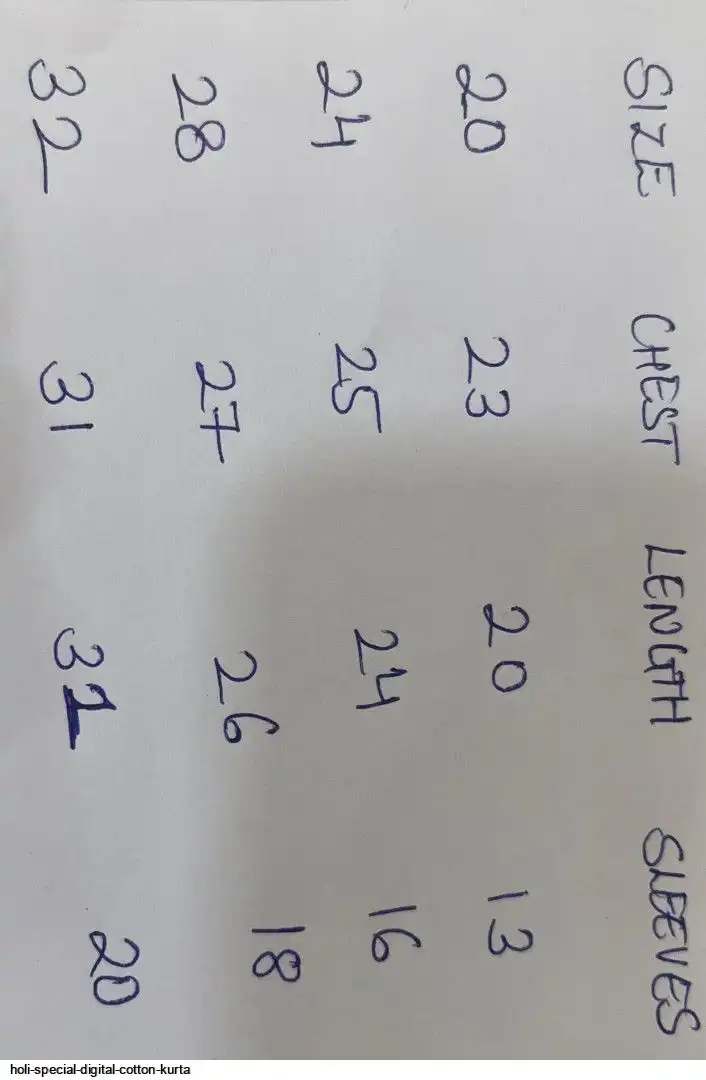 SIZE CHEST LENGTH SLEEVES
20 23 20 13
24 25 24 16
28 27 26 18
32 31 31 20
holi-special-digital-cotton-kurta